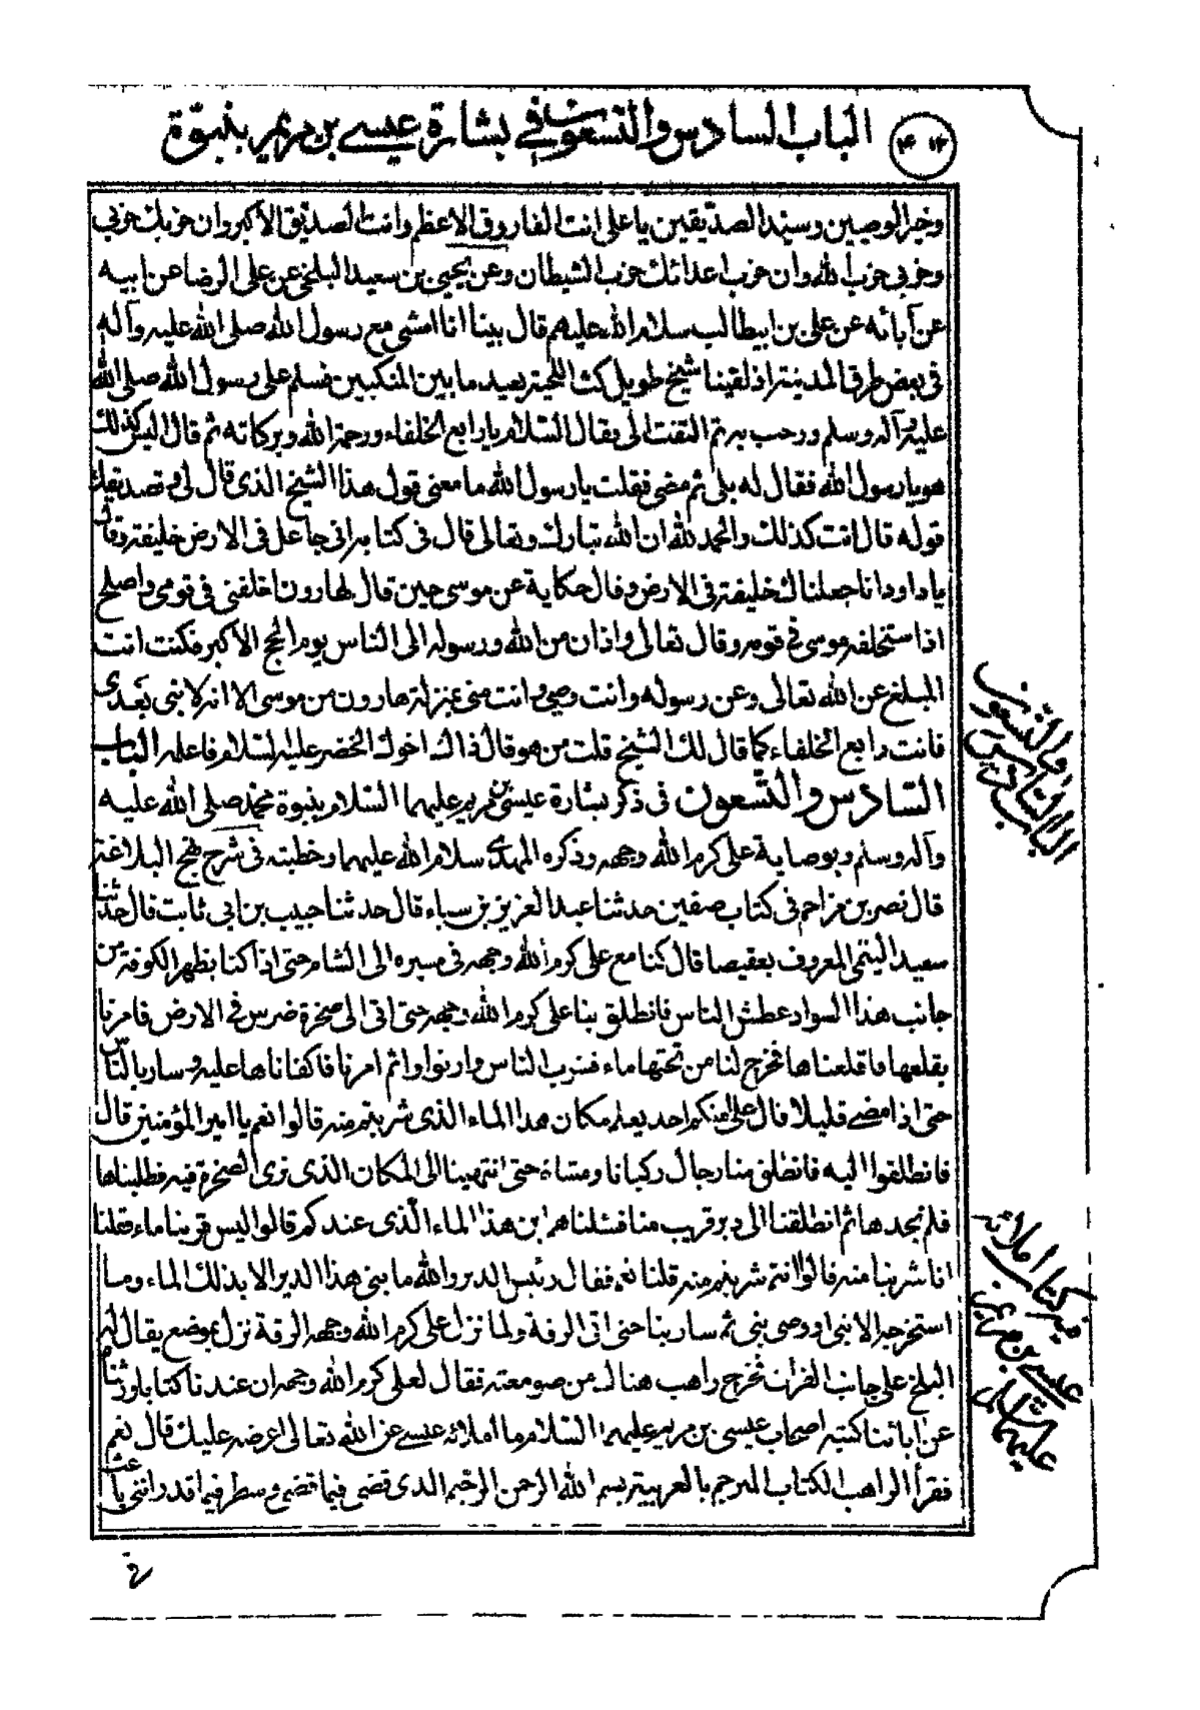 ٤١٢
الباب السادس والتسعون في بشارة عيسى بن مريم بنبوّة
وخير الوصيين وسيد الصديقين يا على انت الفاروق الاعظم وانت الصديق الاكبر وان حزبك حزبي
وحزبي حزب الله وان حزب اعدائك حزب الشيطان وعن يحيى بن سعيد البلخى عن على الرضا عن ابيه
عن آبائه عن على بن ابيطالب سلام الله عليهم قال بينا انا امشى مع رسول الله صلى الله عليه وآله
فى بعض طرق المدينة اذ لقينا شيخ طويل كث اللحية بعيد ما بين المنكبين فسلم على رسول الله صلى الله
عليه وآله وسلم ورحب به ثم التفت الى فقال السلام يا رابع الخلفاء ورحمة الله وبركاته ثم قال اليس كذلك
هو يا رسول الله فقال له بلى ثم مضى فقلت يا رسول الله ما معنى قول هذا الشيخ الذى قال لى وتصديقك
قوله قال انت كذلك والحمد لله ان الله تبارك وتعالى قال فى كتابه انى جاعل فى الارض خليفة وقال
يا داود انا جعلناك خليفة فى الارض وقال حكاية عن موسى حين قال لهارون اخلفنى فى قومى واصلح
اذ استخلفه موسى فى قومه وقال تعالى واذان من الله ورسوله الى الناس يوم الحج الاكبر فكنت انت
المبلغ عن الله تعالى وعن رسوله وانت وصيى وانت منى بمنزلة هارون من موسى الا انه لا نبى بعدى
فانت رابع الخلفاء كما قال لك الشيخ قلت من هو قال ذاك اخوك الخضر عليه السلام فاعلم الباب
السادس والتسعون فى ذكر بشارة عيسى بن مريم عليهما السلام بنبوة محمد صلى الله عليه
وآله وسلم وبوصاية على كرم الله وجهه وذكره المهدى سلام الله عليهما وخطبته فى شرح نهج البلاغة
قال نصر بن مزاحم فى كتاب صفين حدثنا عبد العزيز بن سباء قال حدثنا حبيب بن ابى ثابت قال حدثنا
سعيد التيمى المعروف بعقيصا قال كنا مع على كرم الله وجهه فى مسيره الى الشام حتى اذا كنا بظهر الكوفة من
جانب هذا السواد عطش الناس فانطلق بنا على كرم الله وجهه حتى اتى الى صخرة ضرس فى الارض فامرنا
بقلعها فاقلعناها فخرج لنا من تحتها ماء فشرب الناس وارتووا ثم امرنا فاكفاناها عليه وسار بالناس
حتى اذا مضى قليلا قال على امنكم احد يعلم مكان هذا الماء الذى شربتم منه قالوا نعم يا امير المؤمنين قال
فانطلقوا اليه فانطلق منا رجال ركبانا ومشاة حتى انتهينا الى المكان الذى نرى الصخرة فيه فطلبناها
فلم نجدها ثم انطلقنا الى دير قريب منا فسئلناهم اين هذا الماء الذى عندكم قالوا ليس قربنا ماء فقلنا
انا شربنا منه قالوا انتم شربتم منه قلنا نعم فقال رئيس الدير والله ما بنى هذا الدير الا بذلك الماء وما
استخرجه الا نبى او وصى نبى ثم سار بنا حتى اتى الرقة ولما نزل على كرم الله وجهه الرقة نزل بموضع يقال له
البليخ على جانب الفرات فخرج راهب هناك من صومعته فقال لعلى كرم الله وجهه ان عندنا كتابا ورثنا
عن ابائنا كتبه اصحاب عيسى بن مريم عليهما السلام ما املائه عيسى عن الله تعالى اعرضه عليك قال نعم
فقرأ الراهب الكتاب المترجم بالعربية بسم الله الرحمن الرحيم الذى قضى فيما قضى وسطر فيما قدر اننى باعث
الباب السادس والتسعون
فيه كتاب املائه
عيسى بن مريم
عليهما السلام
فى